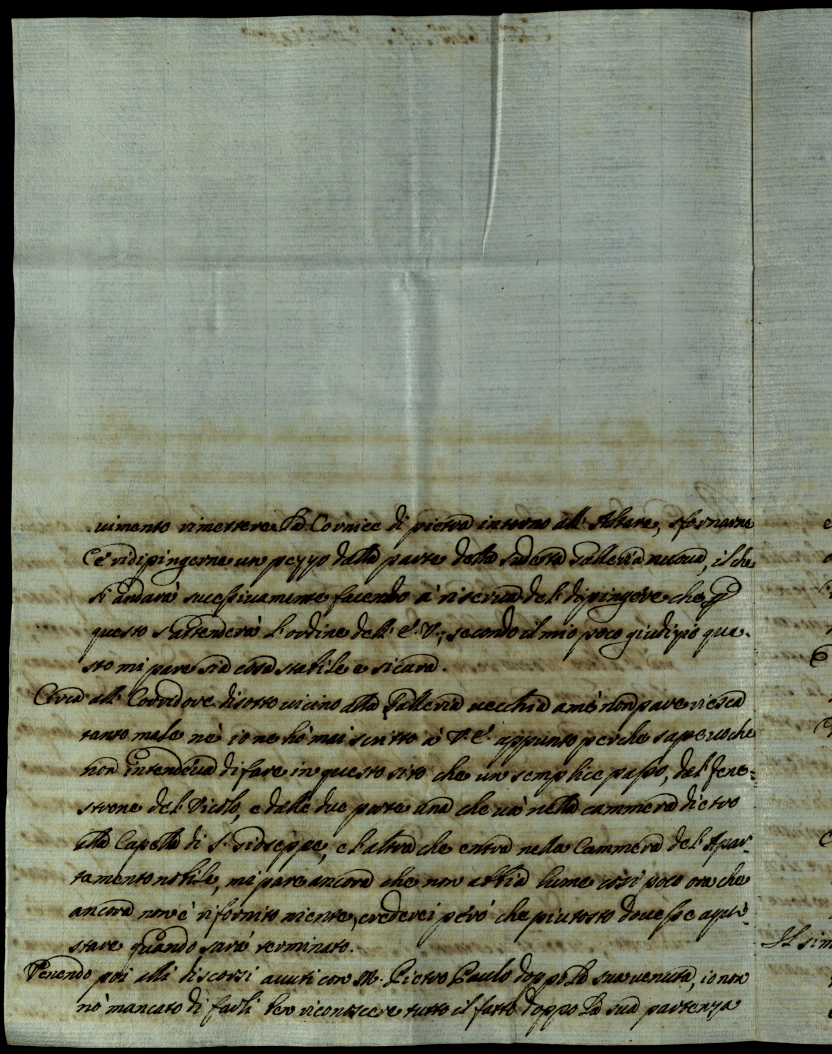 vimento rimettere la Cornice di pietra intorno all' Altare, sfornarne
e ridipingerne un pezzo dalla parte della sudetta Galleria nuova, il che
si andarà successivamente facendo a' riserva del dipingere che
questo s'attenderà l'ordine dell' E. V., secondo il mio poco giudizio que-
sto mi pare sia cosa stabile e sicura.
Circa all' Corridore di sotto vicino alla Galleria vecchia a me non pare riesca
tanto male nè io ne hò mai scritto à V. E. appunto perche sapevo che
non intendeva di fare in questo sito che un semplice passo, dal fene-
strone del Vicolo, e dalle due porte una che và nella cammera dietro
alla Capella di S. Gioseppe, e l'altra che entra nella Cammera del Apar-
tamento nobile, mi pare ancora che non abbia lume così poco ora che
ancora non è rifornito niente, crederei però che piutosto dovesse aqui-
stare quando sarà terminato.
Venendo poi alli discorsi avuti con M. Pietro Paulo doppo la sua venuta, io non
hò mancato di farli ben riconoscere tutto il fatto doppo la sua partenza
Il sim